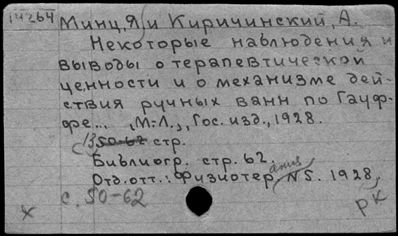 14264
Минц, Я и Киричинский, А.
Некоторые наблюдения и
выводы о терапевтической
ценности и о механизме дей-
ствия ручных ванн по Гауф-
фе... (М.-Л.), Гос. изд., 1928.
50-62 стр.
Библиогр. стр. 62.
Отд. отт.: Физиотер, N 5. 1928,
с. 50-62
рк